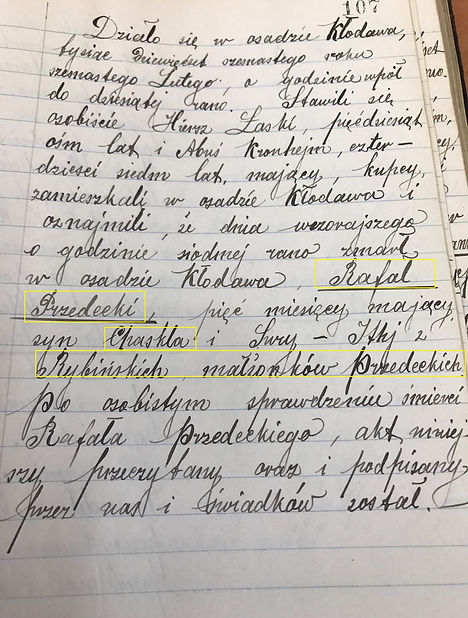 107
Działo się w osadzie Kłodawa,
tysiąc dziewięćset szesnastego roku
szesnastego Lutego, o godzinie wpół
do dziesiąty rano. Stawili się
osobiście Hiersz Łaski, pięćdziesiąt
ośm lat i Abuś Kronhejm, czter-
dzieści siedm lat, mający, kupcy,
zamieszkali w osadzie Kłodawa i
oznajmili, że dnia wczorajszego
o godzinie siódmej rano zmarł
w osadzie Kłodawa, Rafał
Przedecki, pięć miesięcy mający
syn Chaskla i Sury-Ithy z
Rybińskich, małżonków Przedeckich
po osobistym sprawdzeniu śmierci
Rafała Przedeckiego, akt niniej
szy przeczytany oraz i podpisany
przez nas i świadków został.